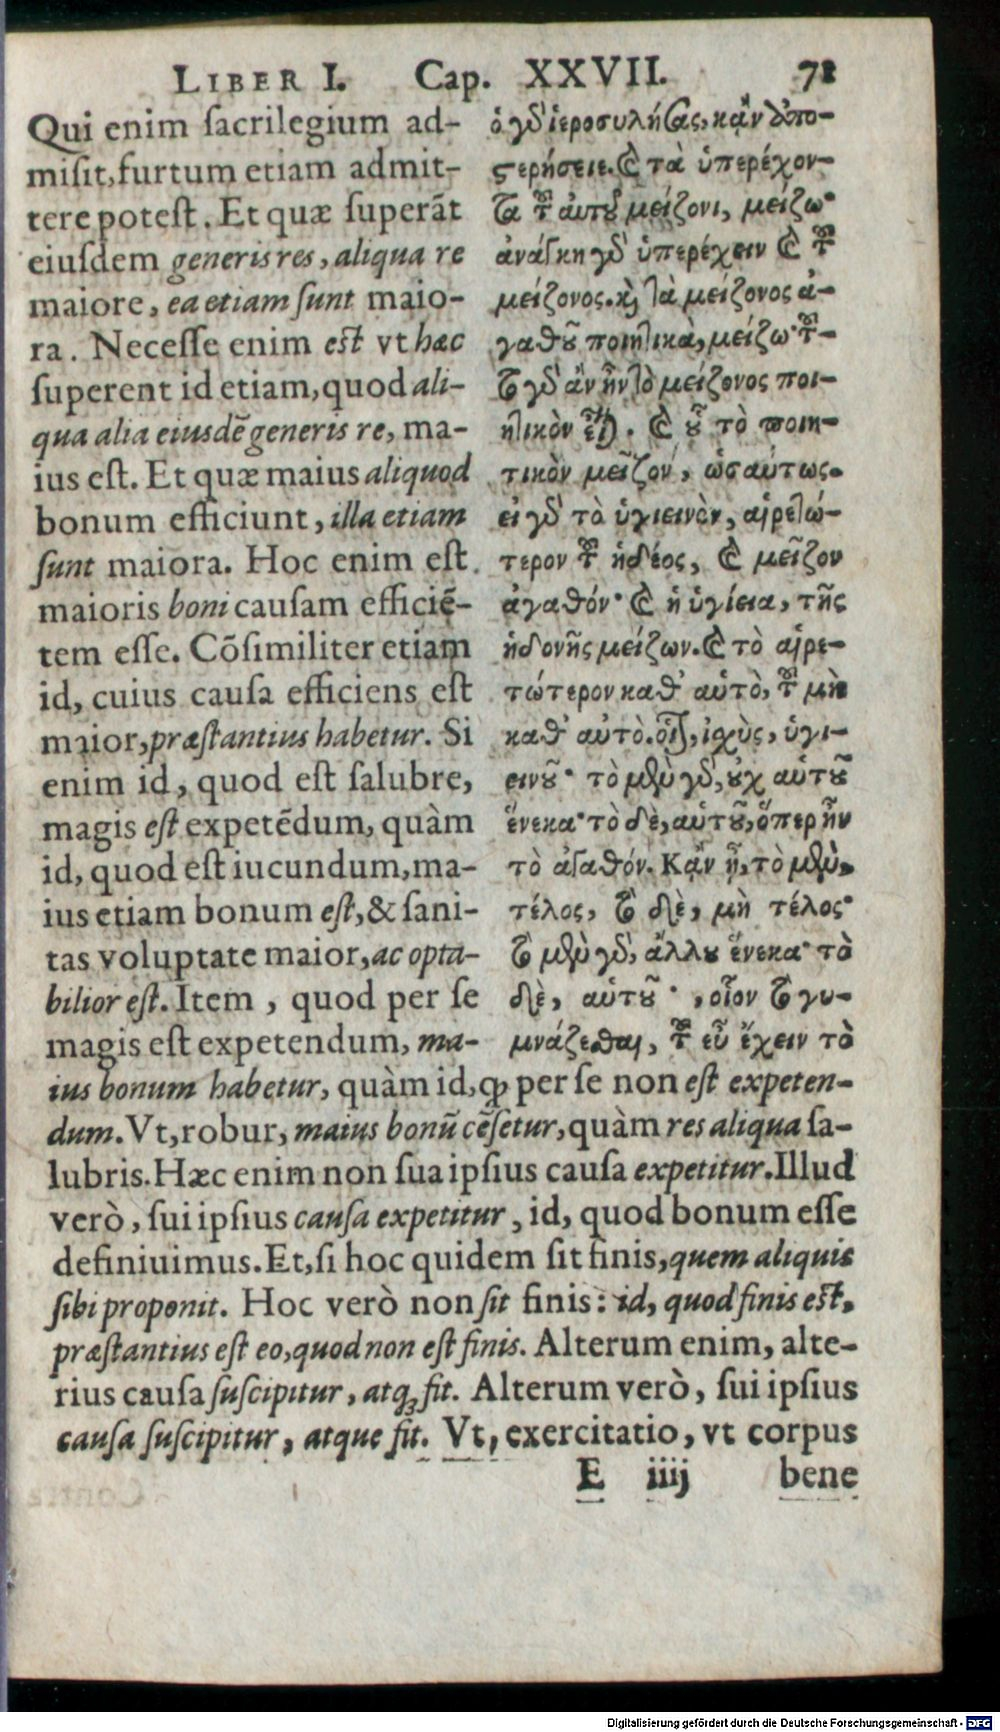 LIBER I. Cap. XXVII. 71
Qui enim ſacrilegium ad-
miſit, furtum etiam admit-
tere poteſt. Et quæ ſuperãt
eiuſdem generis res, aliqua re
maiore, ea etiam ſunt maio-
ra. Neceſſe enim eſt vt hæc
ſuperent id etiam, quod ali-
qua alia eiusdẽ generis re, ma-
ius eſt. Et quæ maius aliquod
bonum efficiunt, illa etiam
ſunt maiora. Hoc enim eſt
maioris boni cauſam efficiẽ-
tem eſſe. Cõſimiliter etiam
id, cuius cauſa efficiens eſt
maior, præſtantius habetur. Si
enim id, quod eſt ſalubre,
magis eſt expetẽdum, quàm
id, quod eſt iucundum, ma-
ius etiam bonum eſt, & ſani-
tas voluptate maior, ac opta-
bilior eſt. Item, quod per ſe
magis eſt expetendum, ma-
ὁ γδ ἱεροσυλήσας, κᾂν ἀπο-
ϛερήσειε. καὶ τὰ ὑπερέχον-
τα τοῦ αὐτοῦ μείζονι, μείζω·
ἀνάγκη γδ ὑπερέχειν καὶ τοῦ
μείζονος. καὶ τὰ μείζονος ἀ-
γαθοῦ ποιητικὰ, μείζω· τοῦ-
το γδ ἂν ἦν τὸ μείζονος ποι-
ητικὸν εἶναι. καὶ οὗ τὸ ποιη-
τικὸν μεῖζον, ὡσαύτως.
εἰ γδ τὸ ὑγιεινὸν, αἱρετώ-
τερον τοῦ ἡδέος, καὶ μεῖζον
ἀγαθόν· καὶ ἡ ὑγίεια, τῆς
ἡδονῆς μείζων. καὶ τὸ αἱρε-
τώτερον καθ’ αὑτὸ, τοῦ μὴ
καθ’ αὑτὸ. οἷον, ἰσχὺς, ὑγι-
εινοῦ· τὸ μὲν γδ, οὐχ αὑτοῦ
ἕνεκα· τὸ δὲ, αὑτοῦ, ὅπερ ἦν
τὸ ἀγαθόν. Κᾂν ᾖ, τὸ μὲν,
τέλος, τὸ δὲ, μὴ τέλος·
τὸ μὲν γδ, ἄλλου ἕνεκα· τὸ
δὲ, αὑτοῦ·, οἷον τὸ γυ-
μνάζεσθαι, τοῦ εὖ ἔχειν τὸ
ius bonum habetur, quàm id, ꝙ per ſe non eſt expeten-
dum. Vt, robur, maius bonũ cẽſetur, quàm res aliqua ſa-
lubris. Hæc enim non ſua ipſius cauſa expetitur. Illud
verò, ſui ipſius cauſa expetitur, id, quod bonum eſſe
definiuimus. Et, ſi hoc quidem ſit finis, quem aliquis
ſibi proponit. Hoc verò non ſit finis: id, quod finis eſt,
præſtantius eſt eo, quod non eſt finis. Alterum enim, alte-
rius cauſa ſuſcipitur, atq; fit. Alterum verò, ſui ipſius
cauſa ſuſcipitur, atque fit. Vt, exercitatio, vt corpus
E iiij bene
Digitalisierung gefördert durch die Deutsche Forschungsgemeinschaft - DFG